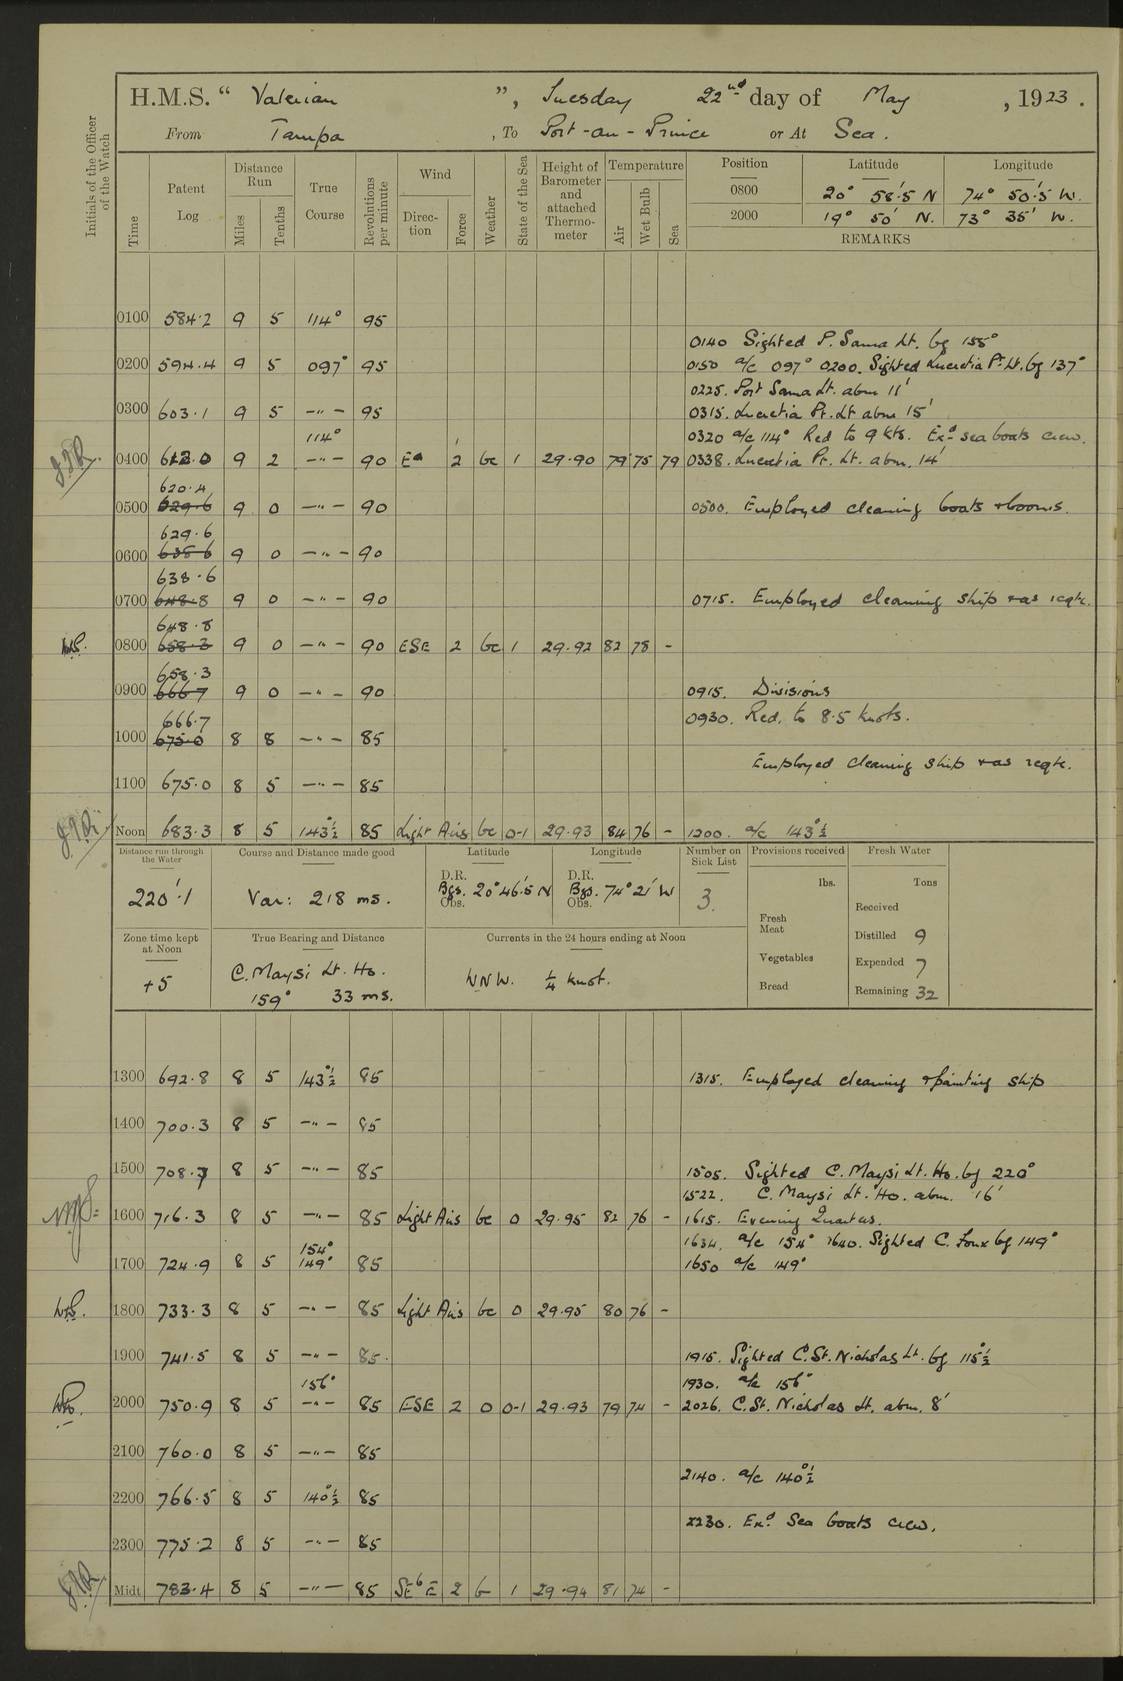 H.M.S. “ Valerian ”, Tuesday 22nd day of May , 1923 .
From Tampa , To Port-au-Prince or At Sea .
Initials of the Officer of the Watch
Time Patent Log Distance Run Miles Tenths True Course Revolutions per minute Wind Direction Force Weather State of the Sea Height of Barometer and attached Thermometer Temperature Air Wet Bulb Sea Position Latitude Longitude
0800 20° 58'.5 N 74° 50'.5 W.
2000 19° 50' N. 73° 35' W.
REMARKS
0100 584.2 9 5 114° 95
0140 Sighted P. Sama Lt. bg 155°
0200 594.4 9 5 097° 95 0150 a/c 097° 0200. Sighted Lucretia Pt. Lt. bg 137°
0225. Port Sama Lt. abm 11'
0300 603.1 9 5 -"- 95 0315. Lucretia Pt. Lt abm 15'
114° 0320 a/c 114° Red to 9 kts. Exd sea boats crew.
0400 612.0 9 2 -"- 90 E 2 bc 1 29.90 79 75 79 0338. Lucretia Pt. Lt. abm. 14'
620.4
0500 629.6 9 0 -"- 90 0500. Employed cleaning boats & booms.
629.6
0600 638.6 9 0 -"- 90
638.6
0700 648.8 9 0 -"- 90 0715. Employed cleaning ship & as reqte.
648.8
0800 658.3 9 0 -"- 90 ESE 2 bc 1 29.92 82 78 -
658.3
0900 666.7 9 0 -"- 90 0915. Divisions
666.7 0930. Red. to 8.5 knots.
1000 675.0 8 8 -"- 85
Employed cleaning ship & as reqte.
1100 675.0 8 5 -"- 85
Noon 683.3 8 5 143°½ 85 Light Airs bc 0-1 29.93 84 76 - 1200. a/c 143°½
Distance run through the Water Course and Distance made good Latitude Longitude Number on Sick List Provisions received Fresh Water
220'.1 Var: 218 ms. D.R. Bgs. Obs. 20° 46'.5 N D.R. Bgs. Obs. 74° 21' W 3.
lbs. Tons
Fresh Meat
Vegetables
Bread
Received
Distilled 9
Expended 7
Remaining 32
Zone time kept at Noon True Bearing and Distance Currents in the 24 hours ending at Noon
+5 C. Maysi Lt. Ho. 159° 33 ms. WNW. ¼ knot.
1300 692.8 8 5 143°½ 85 1315. Employed cleaning & painting ship
1400 700.3 8 5 -"- 85
1500 708.7 8 5 -"- 85 1505. Sighted C. Maysi Lt. Ho. bg 220°
1522. C. Maysi Lt. Ho. abm. 16'
1600 716.3 8 5 -"- 85 Light Airs bc 0 29.95 82 76 - 1615. Evening Quarters.
154° 1634. a/c 154° 1640. Sighted C. Foux bg 149°
1700 724.9 8 5 149° 85 1650 a/c 149°
1800 733.3 8 5 -"- 85 Light Airs bc 0 29.95 80 76 -
1900 741.5 8 5 -"- 85. 1915. Sighted C. St. Nicholas Lt. bg 115°½
156° 1930. a/c 156°
2000 750.9 8 5 -"- 85 ESE 2 0 0-1 29.93 79 74 - 2026. C. St. Nicholas Lt. abm. 8'
2100 760.0 8 5 -"- 85
2140. a/c 140°½
2200 766.5 8 5 140°½ 85
2230. Exd. Sea boats crew.
2300 775.2 8 5 -"- 85
Midt 783.4 8 5 -"- 85 SEbE 2 b 1 29.94 81 74 -